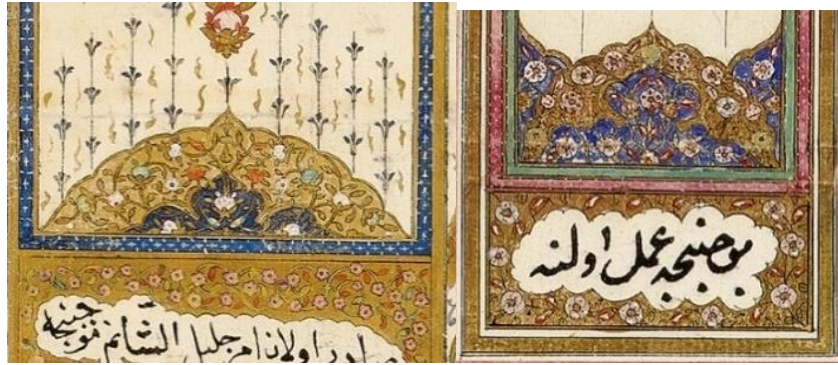 صادر اولان امر جليل الشانم موجبنجه
موجبنجه عمل اولنه